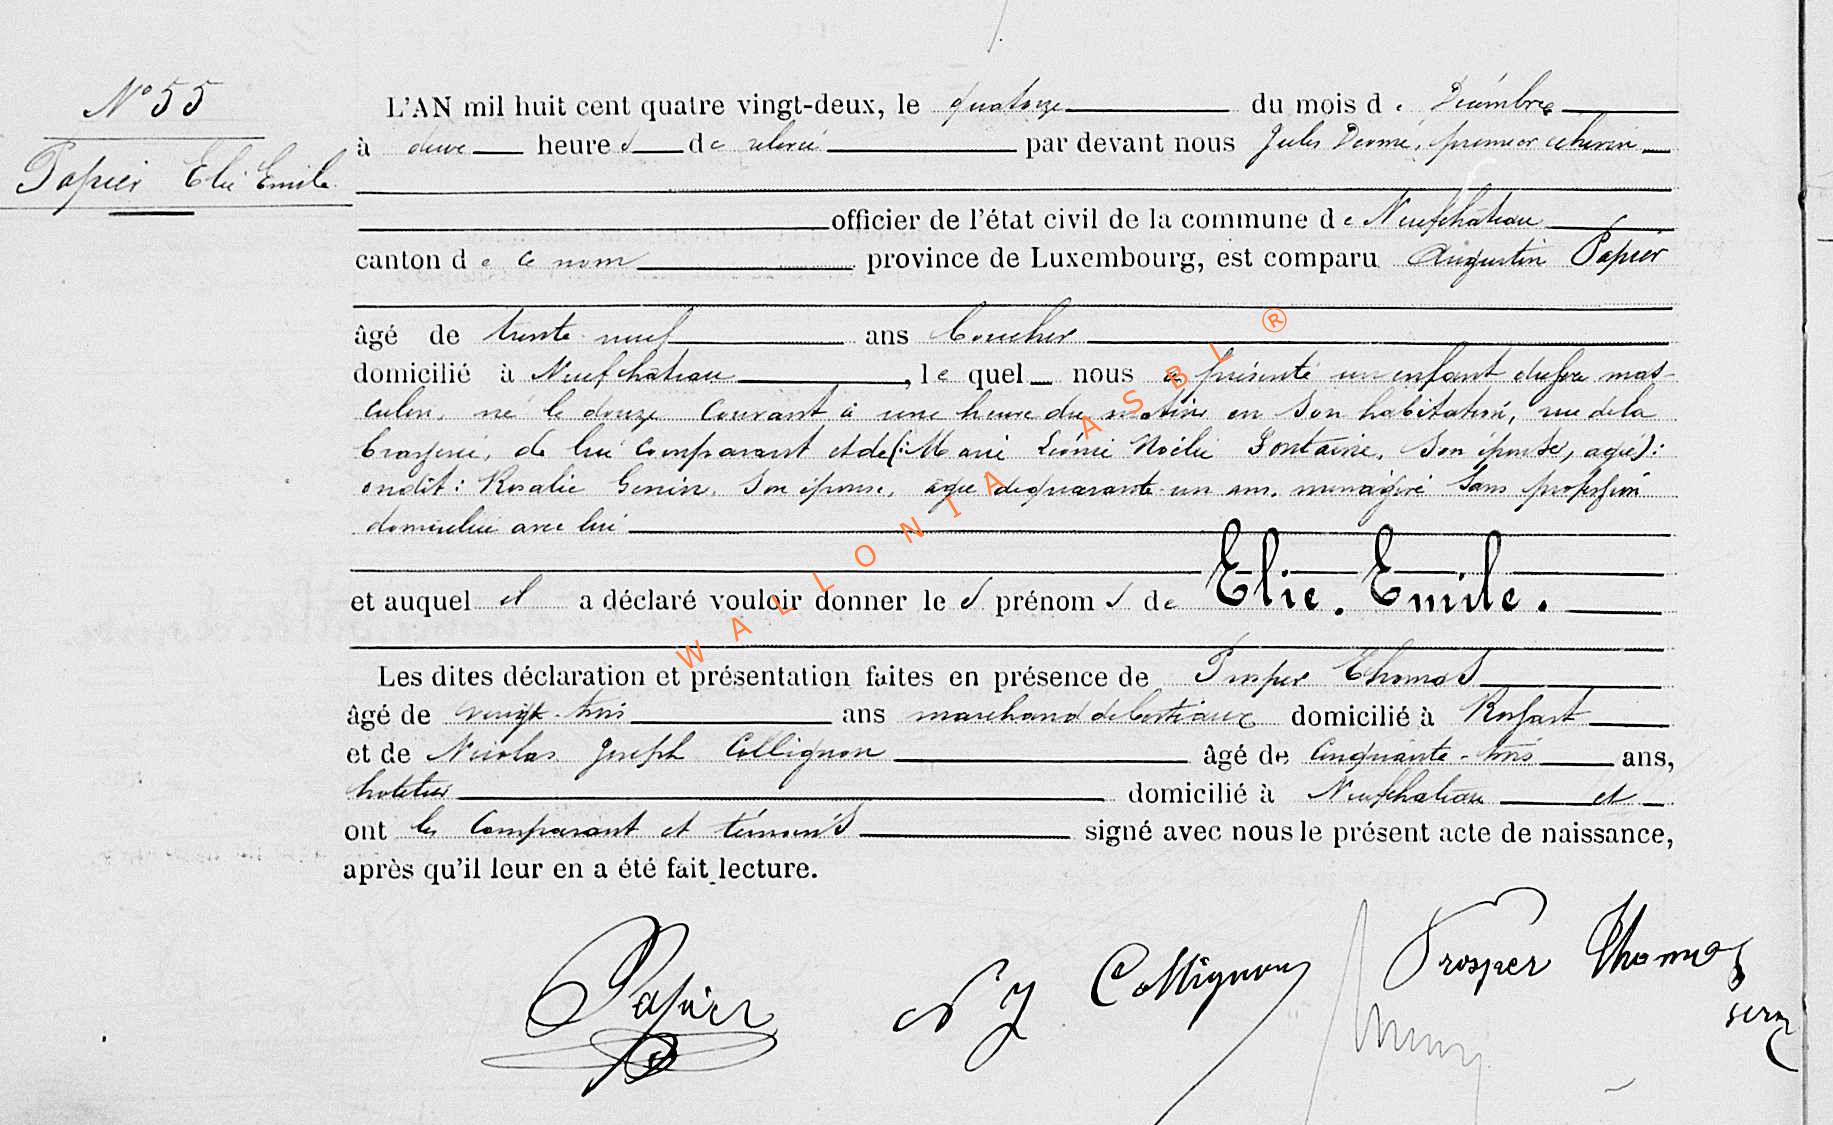 N° 55
Papier Elie Emile
L'AN mil huit cent quatre vingt-deux, le quatorze du mois de Décembre
à deux heures de relevée par devant nous Jules premier échevin
officier de l'état civil de la commune de Neufchâteau
canton de ce nom province de Luxembourg, est comparu Augustin Papier
âgé de trente neuf ans boucher
domicilié à Neufchateau, lequel nous a présenté un enfant du sexe mas-
culin, né le douze courant à une heure du matin en son habitation, rue de la
brasserie, de lui comparant et de (: Marie Léonie Noélie Fontaine, son épouse, agée) :
on dit : Rosalie Genin, son épouse, agée de quarante un ans, ménagère sans profession
domiciliée avec lui
et auquel il a déclaré vouloir donner les prénoms de Elie. Emile.
Les dites déclaration et présentation faites en présence de Prosper Thomas
âgé de vingt-trois ans marchand de bestiaux domicilié à Rossart
et de Nicolas Joseph Collignon âgé de cinquante-trois ans,
hotelier domicilié à Neufchateau et
ont les comparant et témoins signé avec nous le présent acte de naissance,
après qu'il leur en a été fait lecture.
Papier
N J Collignon
Prosper Thomas
WALLONIA ASBL ®